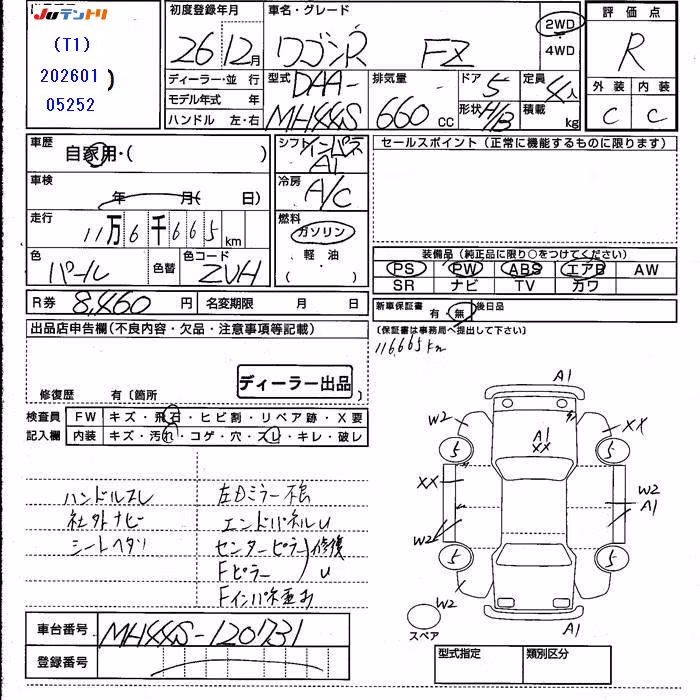 JUテントリ
(T1)
202601
05252
)
初度登録年月
26 12月
車名・グレード
ワゴンR FZ
2WD
4WD
評価点
R
外装 内装
C C
ディーラー・並行
モデル年式 年
ハンドル 左・右
型式
DAA-
MH44S
排気量
660 cc
ドア
5
形状 H/B
定員
4人
積載
kg
車歴
自家用・( )
車検
年 月( 日)
走行
11万6千665km
色
パール
色替
色コード
ZVH
シフト インパネ
AT
冷房
A/C
燃料
ガソリン
軽油
( )
セールスポイント(正常に機能するものに限ります)
装備品(純正品に限り○をつけてください)
PS PW ABS エアB AW
SR ナビ TV カワ
R券 8,460 円 名変期限 月 日
新車保証書 有・無 後日品
(保証書は事務局へ提出して下さい)
116,665km
出品店申告欄(不良内容・欠品・注意事項等記載)
ディーラー出品
修復歴 有〔箇所 〕
検査員
記入欄
FW キズ・飛石・ヒビ割・リペア跡・X要
内装 キズ・汚れ・コゲ・穴・スレ・キレ・破レ
ハンドルスレ
社外ナビ
シートヘタリ
左Dミラー不良
エンドパネルU
センターピラー 修復
Fピラー U
Fインパネ歪み
A1
W2
XX
5
A1
XX
5
XX
W2
W2
A1
5
5
W2
A1
スペア
車台番号 MH44S-120731
登録番号
型式指定 類別区分